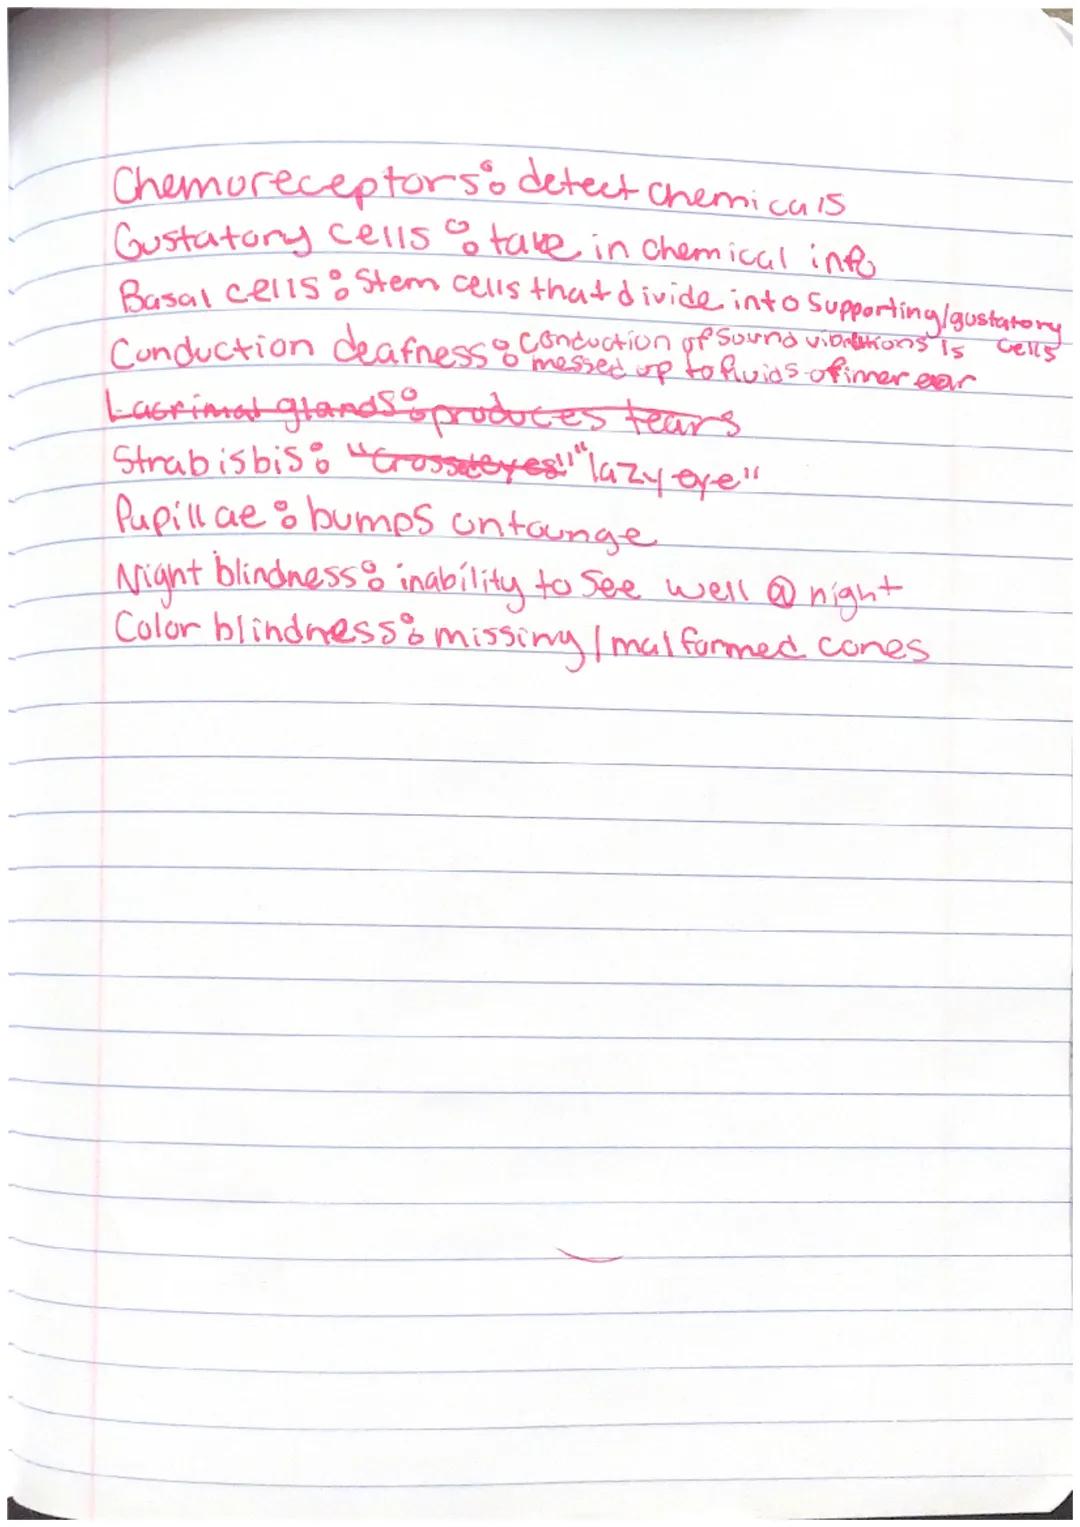 Chemoreceptors: detect chemicals
Gustatory cells: take in chemical info
Basal cells: Stem cells that divide into Supporting/gustatory cells
Conduction deafness: Conduction of sound vibrations is
messed up to fluids of inner ear
Lacrimal glands: produces tears
Strabisbis: "Crossed eyes" "lazy eye"
Papillae: bumps on tounge
Night blindness: inability to See well @ night
Color blindness: missing/malformed cones